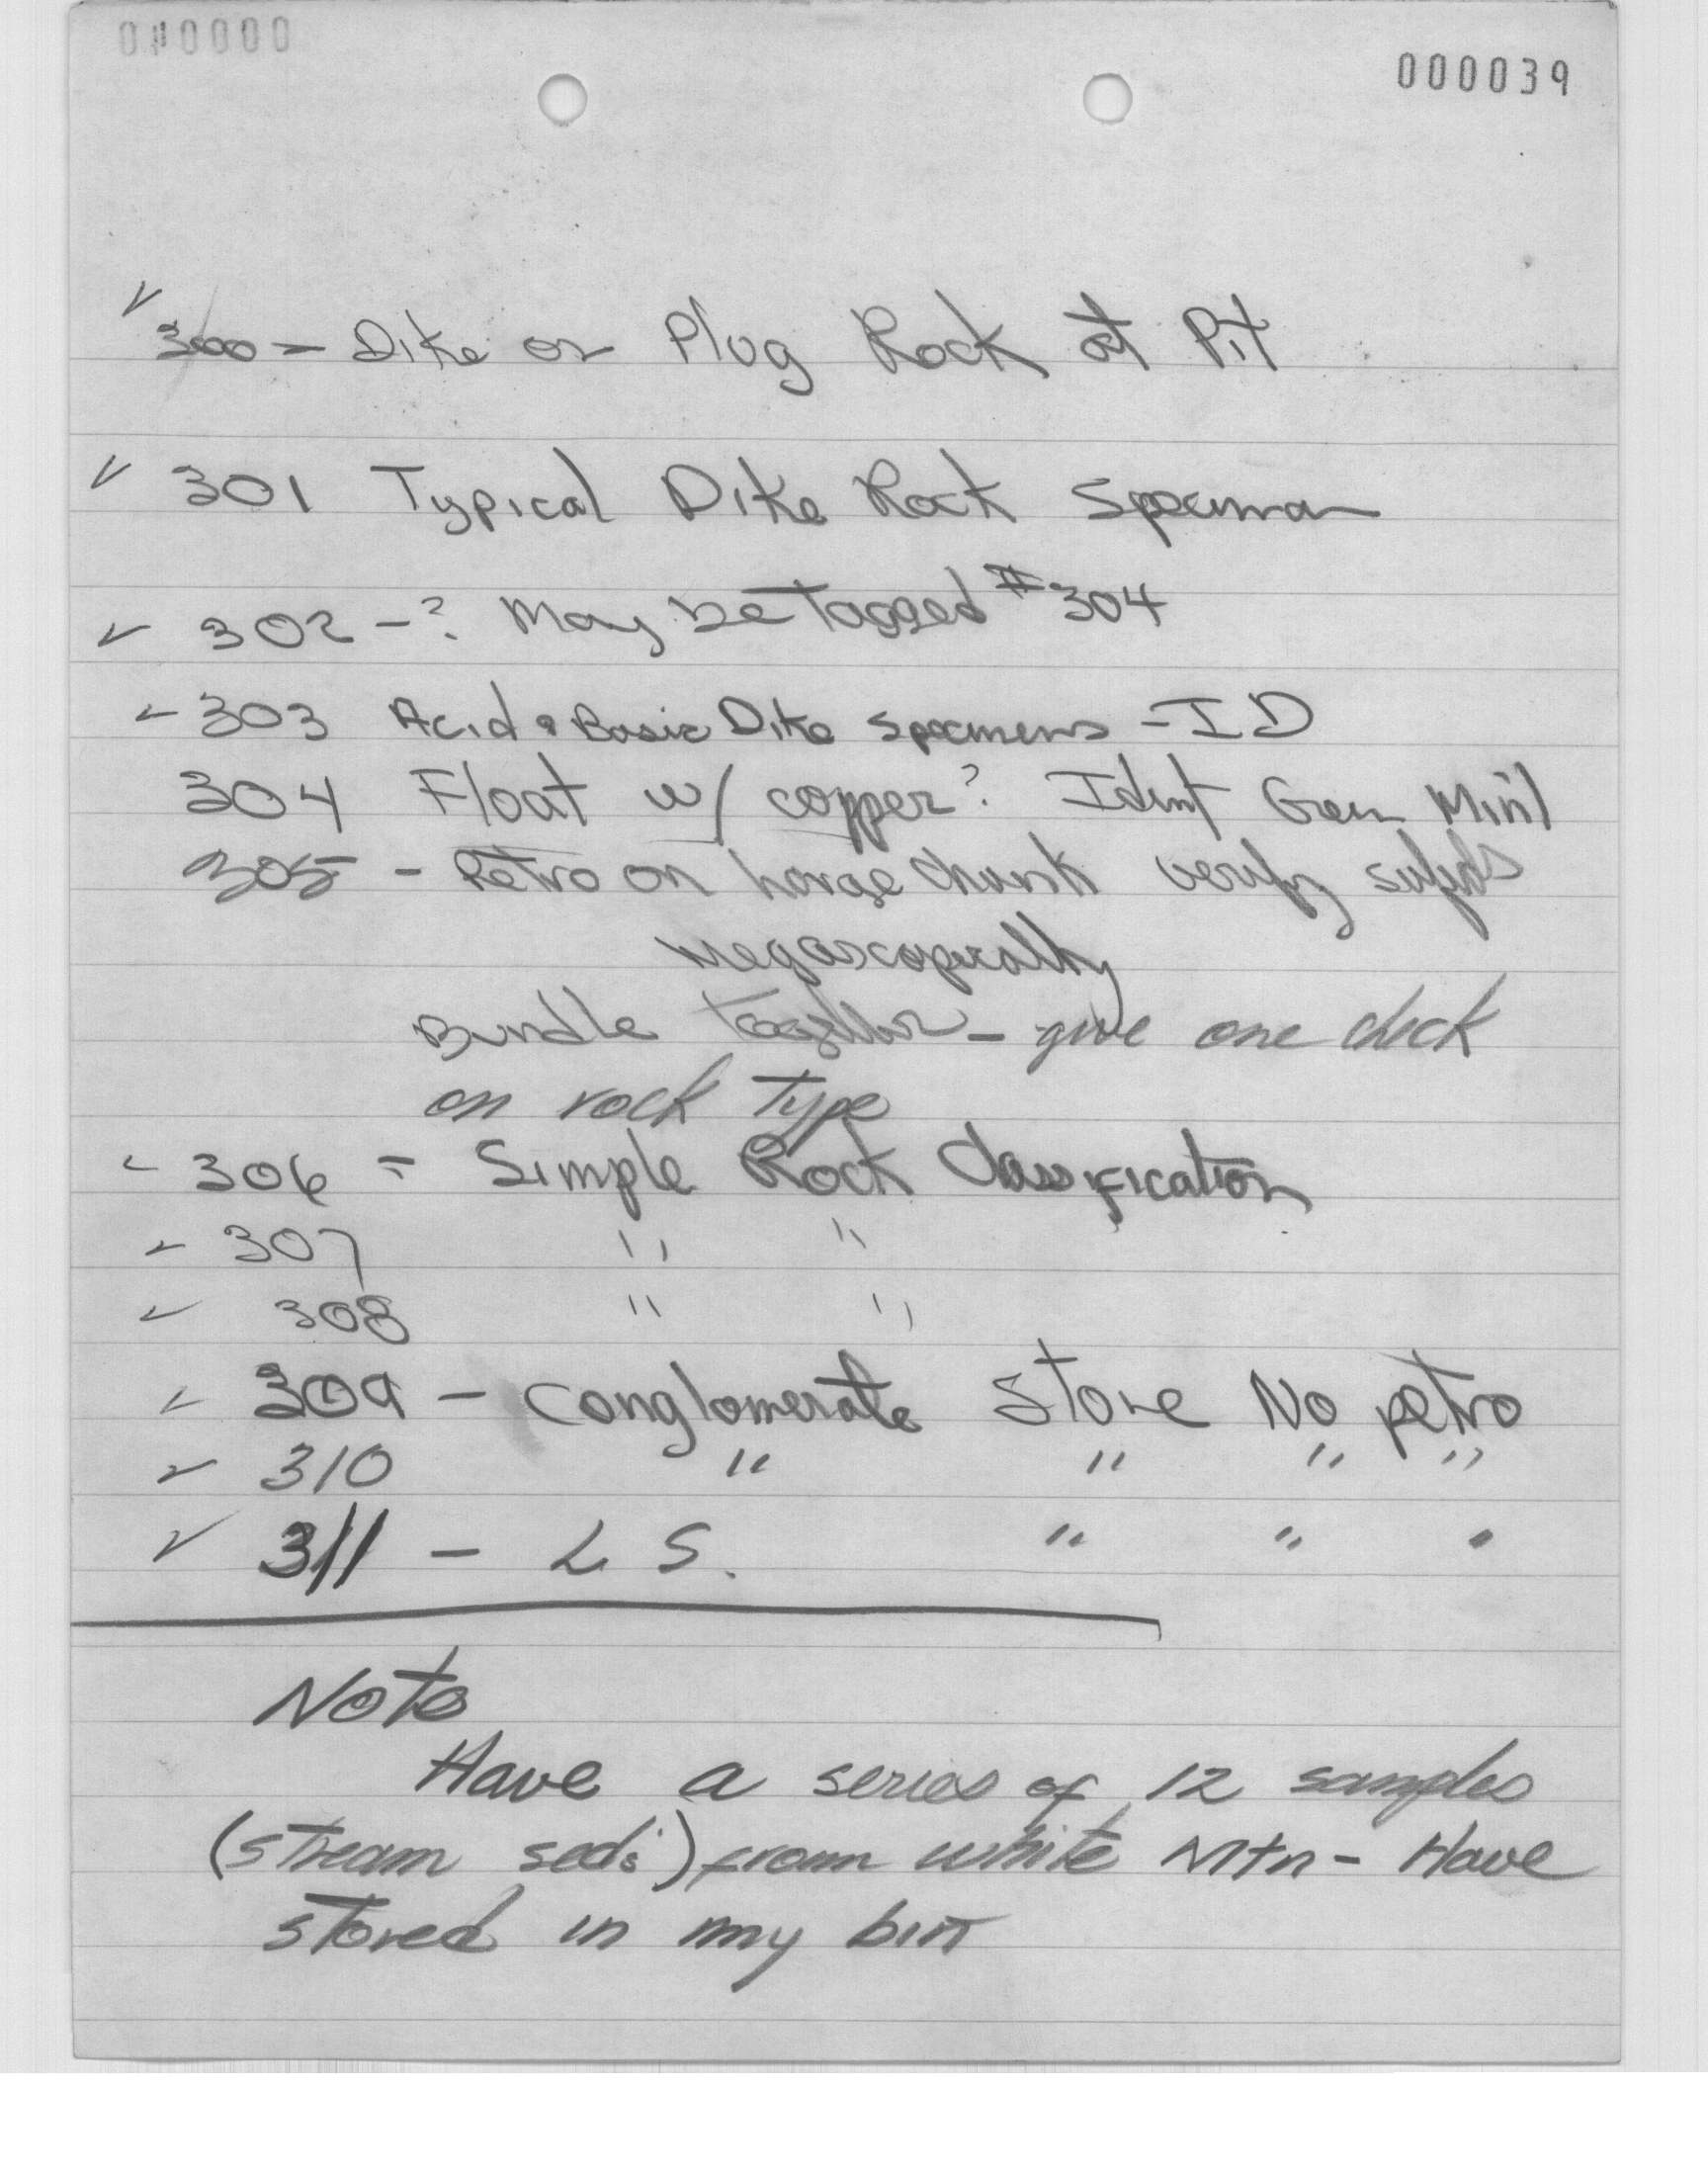 000000
000039
✓ 300 - Dike or Plug Rock at Pit
✓ 301 Typical Dike Rock Speciman
✓ 302 - ? May be Tagged #304
✓ 303 Acid & Basic Dike specimens - ID
304 Float w/ copper? Ident Green Min'l
305 - Petro on large chunk verify sulfids
megascopically
Bundle together - give one check
on rock Type
✓ 306 = Simple Rock Classification
✓ 307 " "
✓ 308 " "
✓ 309 - Conglomerate Store No petro
✓ 310 " " " "
✓ 311 - L S. " " "
Note
Have a series of 12 samples
(stream seds) from white Mtn - Have
stored in my bin